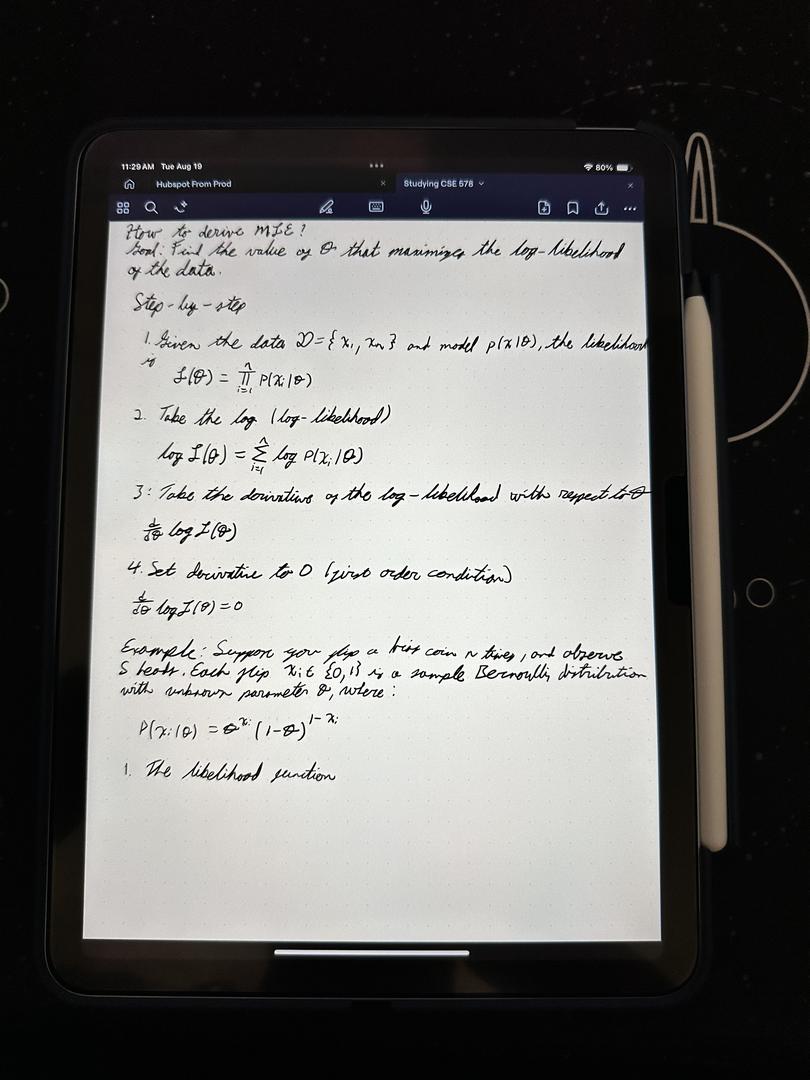 11:29 AM Tue Aug 19
80%
Hubspot From Prod
Studying CSE 578
How to derive MLE?
Goal: Find the value of θ that maximizes the log-likelihood
of the data.
Step-by-step
1. Given the data D = {x₁, xₙ} and model p(x|θ), the likelihood
is
L(θ) = ∏ᵢ₌₁ⁿ P(xᵢ|θ)
2. Take the log (log-likelihood)
log L(θ) = ∑ᵢ₌₁ⁿ log P(xᵢ|θ)
3: Take the derivative of the log-likelihood with respect to θ
d/dθ log L(θ)
4. Set derivative to 0 (first order condition)
d/dθ log L(θ) = 0
Example: Suppose you flip a coin n times, and observe
S heads. Each flip xᵢ ∈ {0,1} is a sample Bernoulli distribution
with unknown parameter θ, where:
P(xᵢ|θ) = θ^xᵢ (1-θ)^1-xᵢ
1. The likelihood function